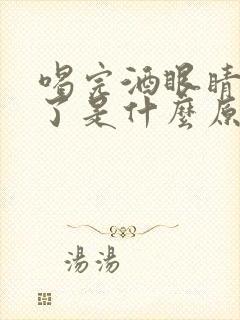 喝完酒眼睛
了是什麼原
湯湯